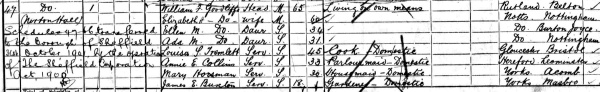 47 Do. 1 William F. Goodliffe Head M 65 Living on own means Rutland Belton
(Norton Hall) Elizabeth Do. wife M 60 Notts Nottingham
Schedules 47 transferred Ellen M. Do. Daur S 34 Do. Burton Joyce
to the Borough of Sheffield Ada M. Do. Daur S 31 Do. Nottingham
October by the Louisa S. Serv S 45 Cook Domestic Gloucester Bristol
of The Sheffield Corporation Annie E. Collins Serv S 33 Parlourmaid Domestic Hereford Leominster
Act 1900 Mary Horsman Serv S 30 Housemaid Domestic Yorks Acomb
James E. Buxton Serv S 18 Gardener Domestic Yorks Masbro